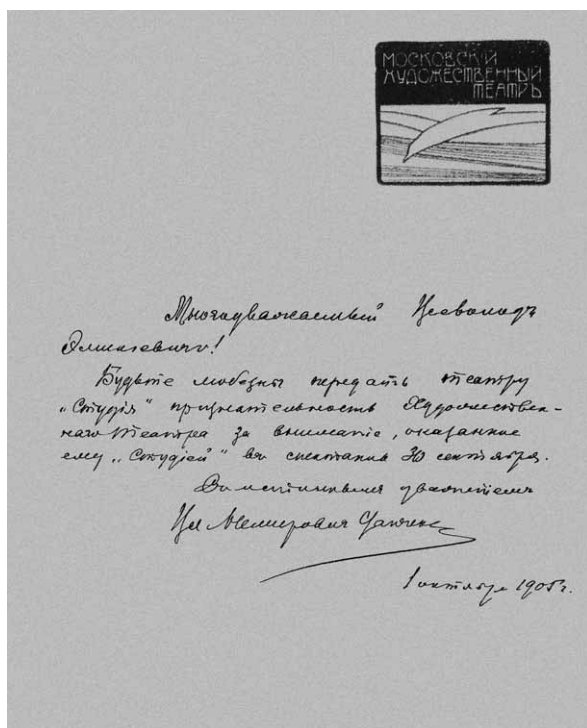 МОСКОВСКІЙ
ХУДОЖЕСТВЕННЫЙ
ТЕАТРЪ
Многоуважаемый Всеволодъ
Эмильевичъ!
Будьте любезны передать театру
„Студія“ признательность Художествен-
наго Театра за вниманіе, оказанное
ему „Студіей“ въ спектакль 30 сентября.
Вл Немировичъ Данченко
1 октября 1905 г.